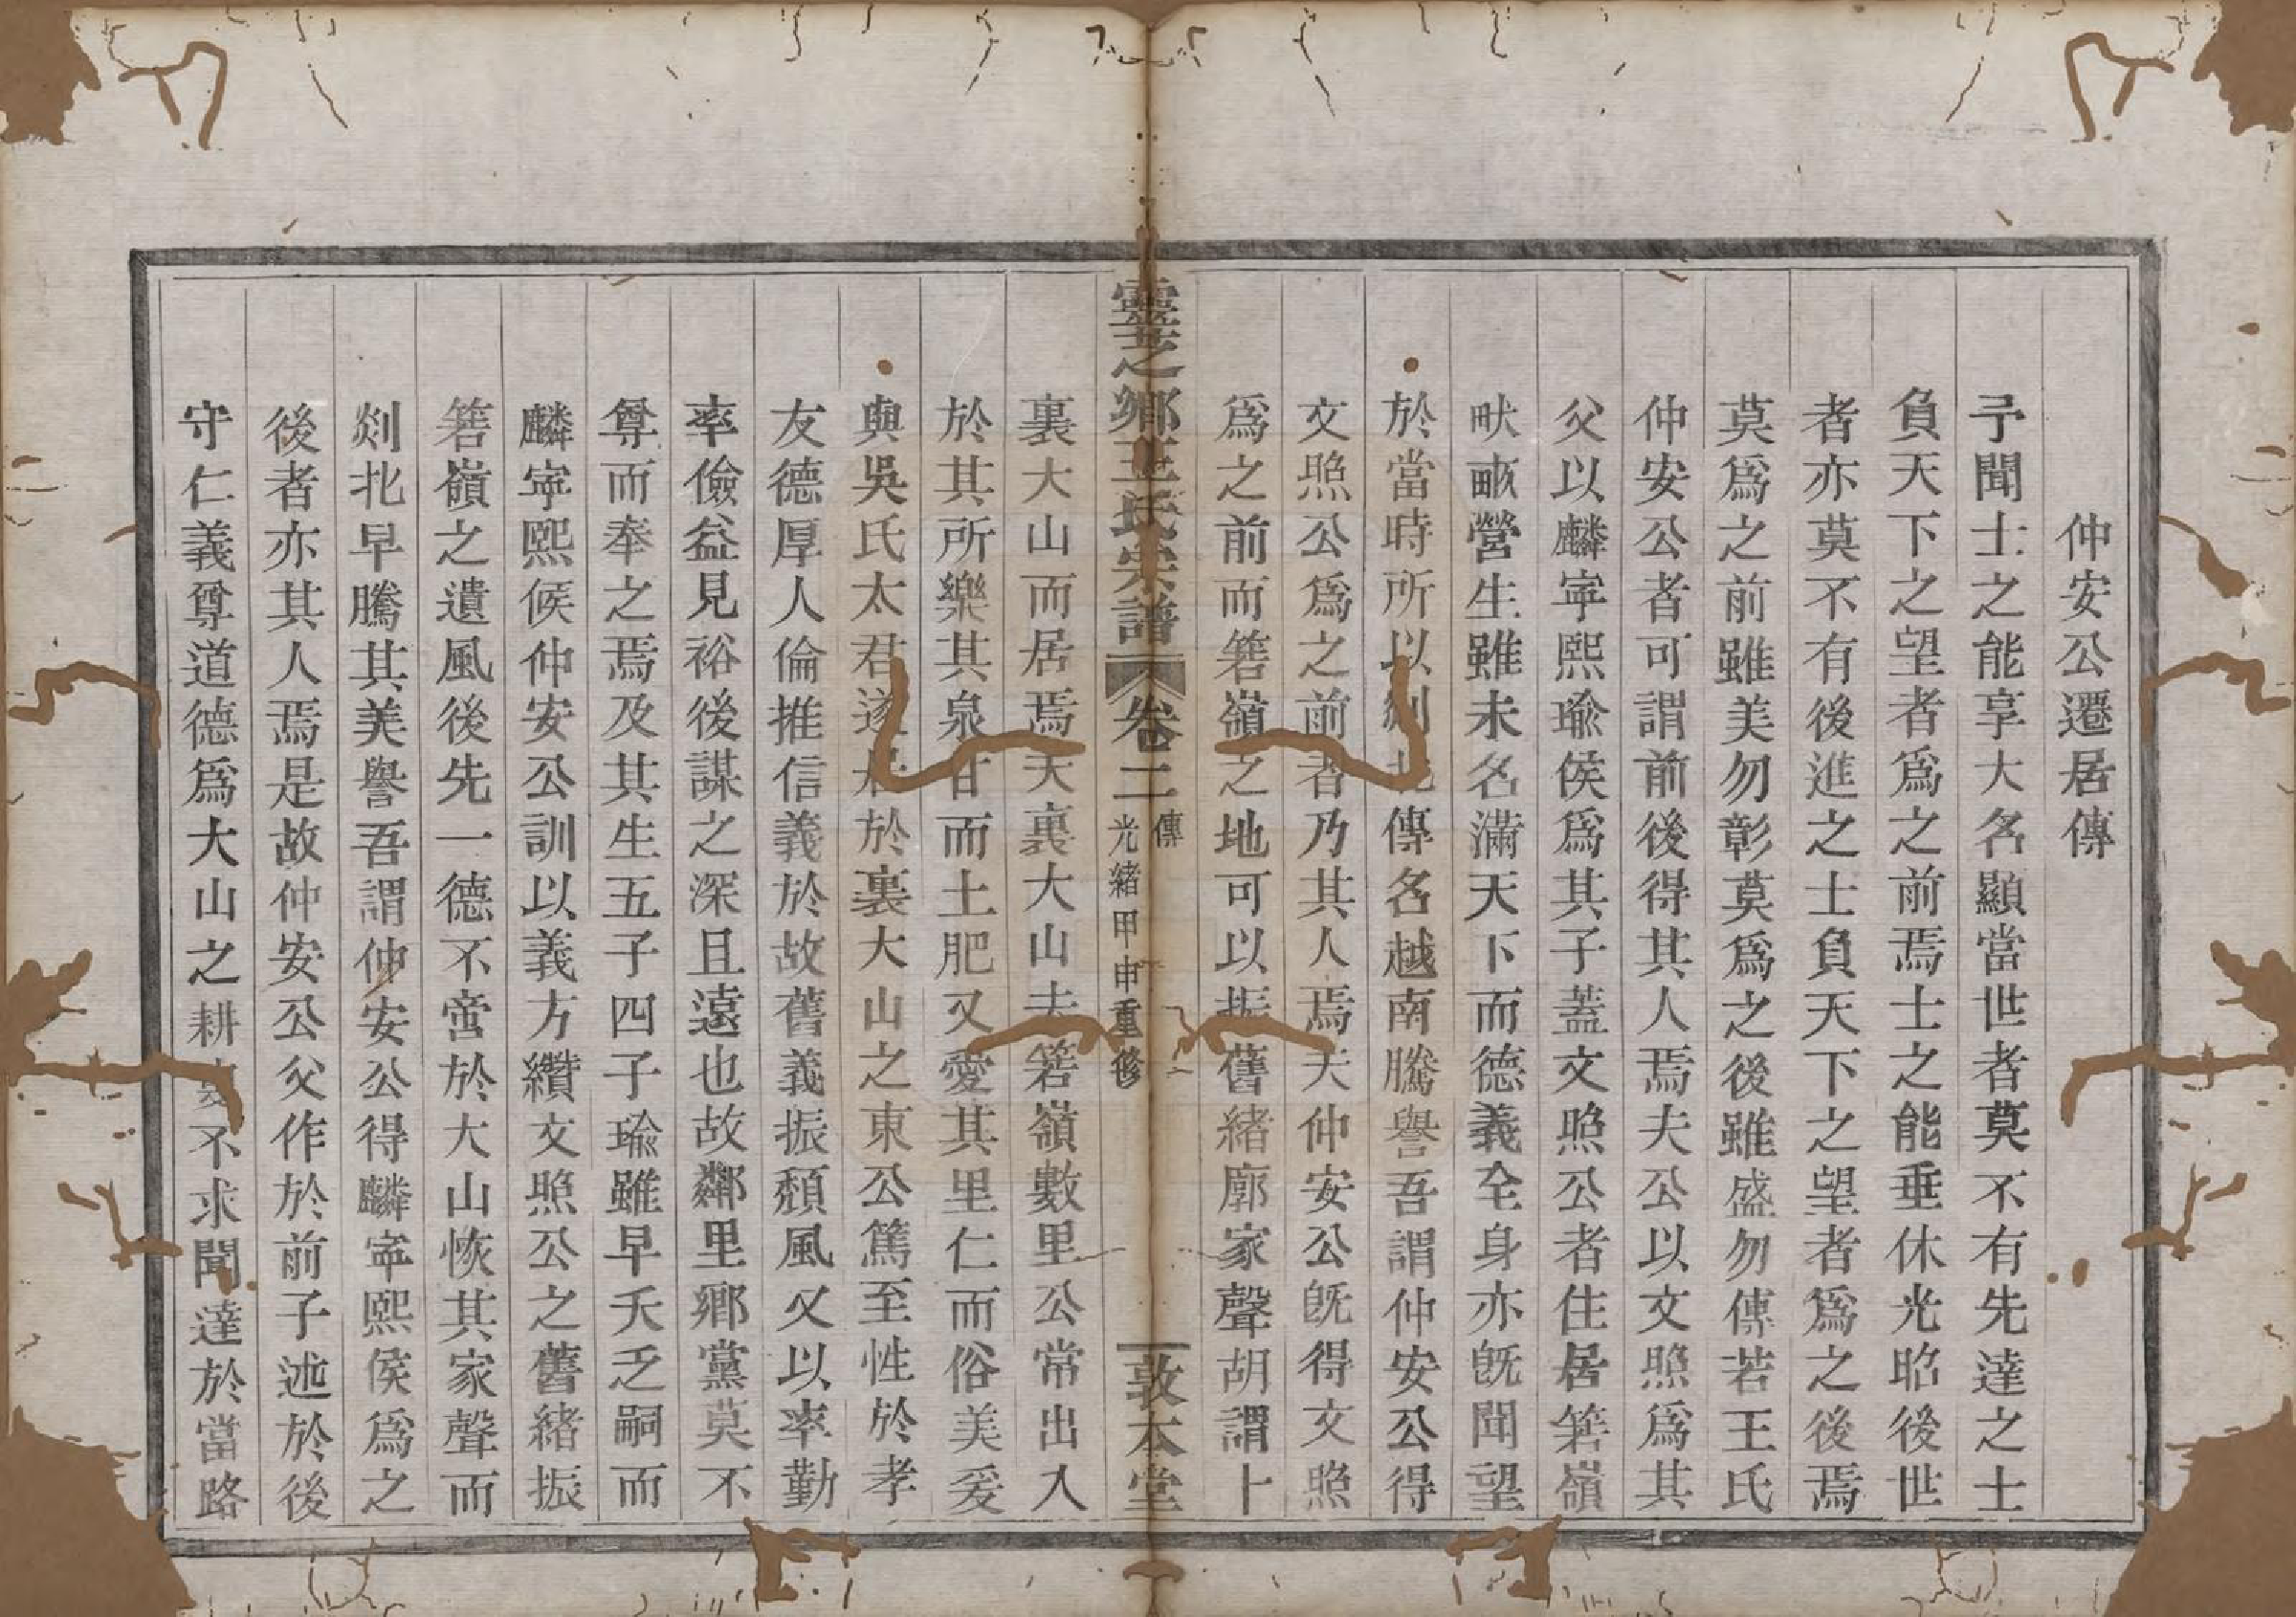 仲安公遷居傳
予聞士之能享大名顯當世者莫不有先達之士
負天下之望者爲之前焉士之能垂休光昭後世
者亦莫不有後進之士負天下之望者爲之後焉
莫爲之前雖美勿彰莫爲之後雖盛勿傳若王氏
仲安公者可謂前後得其人焉夫公以文照爲其
父以麟寧熙瑜侯爲其子蓋文照公者住居箬嶺
畎畞營生雖未名滿天下而德義全身亦旣聞望
於當時所以剡北傳名越南騰譽吾謂仲安公得
文照公爲之前者乃其人焉夫仲安公旣得文照
爲之前而箬嶺之地可以振舊緒廓家聲胡謂卜
靈芝鄉王氏宗譜 卷二 傳 光緒甲申重修 敦本堂
裏大山而居焉夫裏大山去箬嶺數里公常出入
於其所樂其泉甘而土肥又愛其里仁而俗美爰
與吳氏太君遂居於裏大山之東公篤至性於孝
友德厚人倫推信義於故舊義振頹風又以率勤
率儉益見裕後謀之深且遠也故鄰里鄉黨莫不
尊而奉之焉及其生五子四子瑜雖早夭乏嗣而
麟寧熙候仲安公訓以義方纘文照公之舊緒振
箬嶺之遺風後先一德不啻於大山恢其家聲而
剡北早騰其美譽吾謂仲安公得麟寧熙侯爲之
後者亦其人焉是故仲安公父作於前子述於後
守仁義尊道德爲大山之耕不求聞達於當路